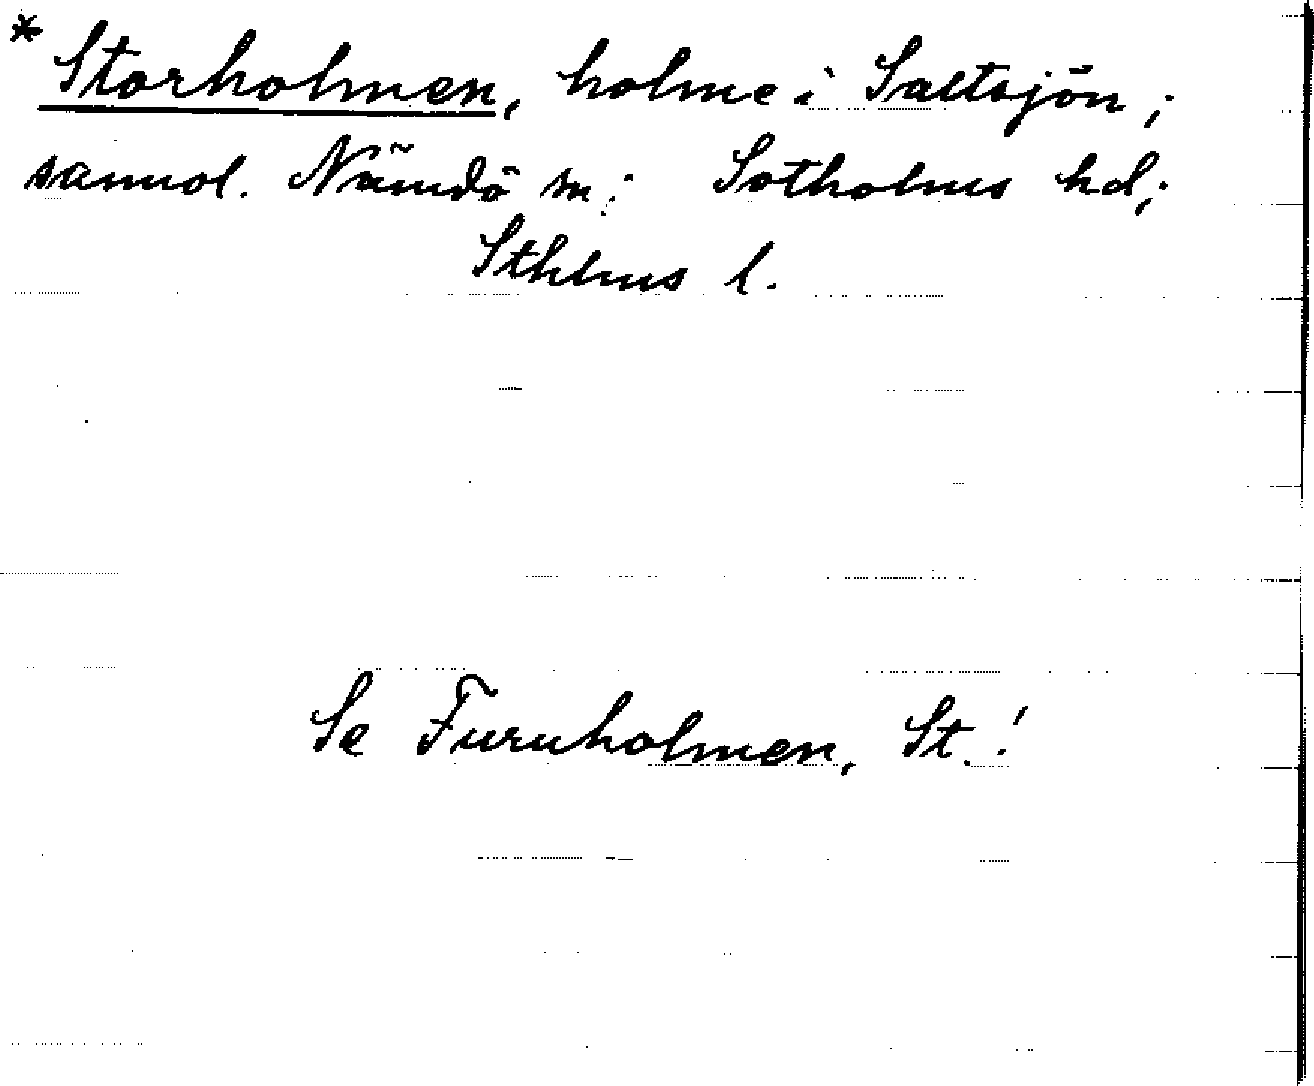 * Storholmen, holme i Saltsjön;
Nämdö sn; Sotholms hd;
Sthlms l.
Se Furuholmen, St.!